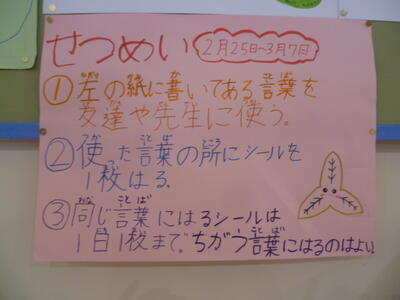 せつめい 2月25日~3月7日
①左の紙に書いてある言葉を
友達や先生に使う。
②使った言葉の所にシールを
1枚はる.
③同じ言葉にはるシールは
1日1枚まで。ちがう言葉にはるのはよい。